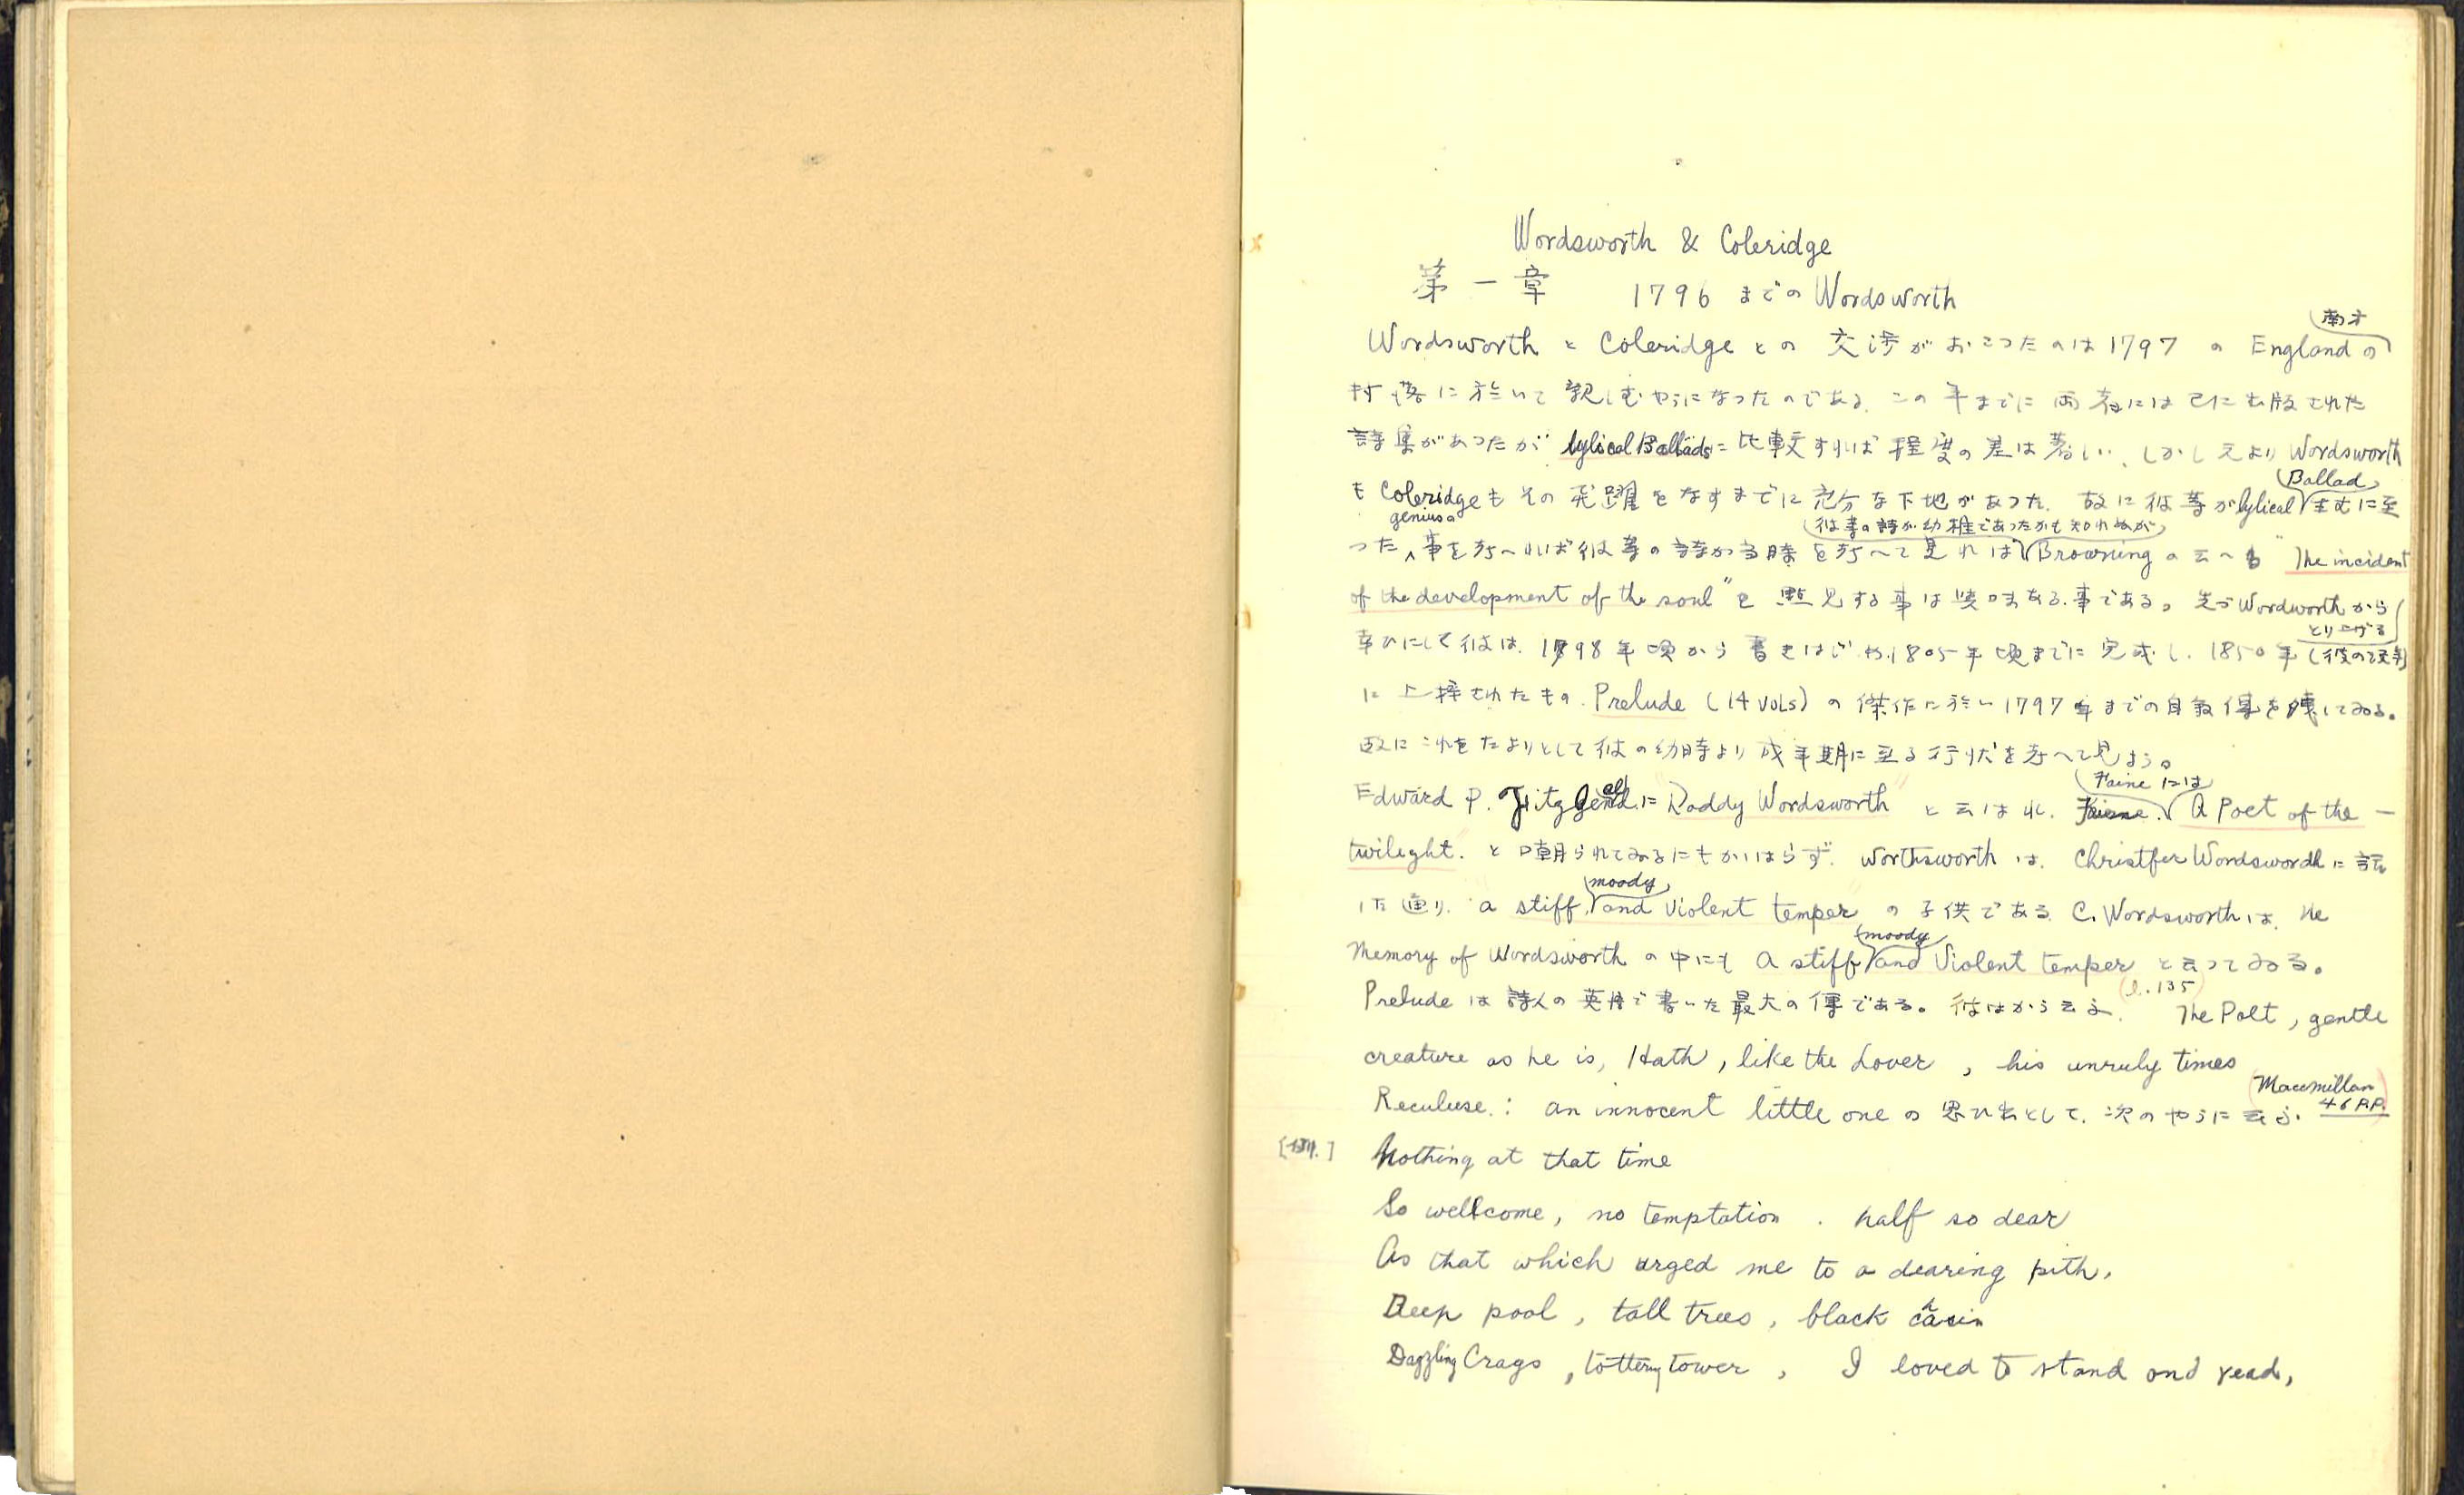 Wordsworth & Coleridge
第一章 1796 までの Wordsworth
南方
Wordsworth と Coleridge との 交渉がおこつたのは 1797 の England の
村落に於いて親しむやうになつたのである。この年までに両者には已に出版された
詩集があつたが lylical Ballads に比較すれば程度の差は著しい、しかし元より Wordsworth
Ballad
も Coleridge もその飛躍をなすまでに充分な下地があつた。故に彼等が lylical に至
genius の
(彼等の詩が幼稚であつたかも知れぬが)
つた事を考へれば彼等の詩が当時を考へて見れば Browning の云へる "The incident
of the development of the soul" を する事は興味ある事である。先づ Wordworth から
とり上げる
幸ひにして彼は、1798年頃から書きはじめ、1805年頃までに完成し、1850年(彼の没年)
に上梓されたもの Prelude (14 vols) の傑作に於い 1797年までの自叙傳を してゐる。
故にこれをたよりとして彼の幼時より成年期に至る行状を考へて見よう。
Faine には
Edward P. Fitzgerald に "Daddy Wordsworth" と云はれ、 A Poet of the –
twileght. と嘲られてゐるにもかゝはらず、Worthsworth は、Christfer Wordswordh に
moody
通り a stiff, and violent temper の子供である C. Wordsworth は、the
moody
Memory of Wordsworth の中にも a stiff and Violent temper と云つてゐる。
(l. 135)
Prelude は詩人の英語で書いた最大の傳である。彼はかう云ふ、 The Polt, gentle
creature as he is, Hath, like the Lover, his unruly times
Macmillan
46 P.P.
Reculuse.: an innocent little one の思ひ出として、次のやうに云ふ、
Nothing at that time
So wellcome, no temptation. half so dear
As that which urged me to a dearing pith,
Deep pool, tall trees, black chasin
Dazzling Crags, tottery tower, I loved to stand and read,